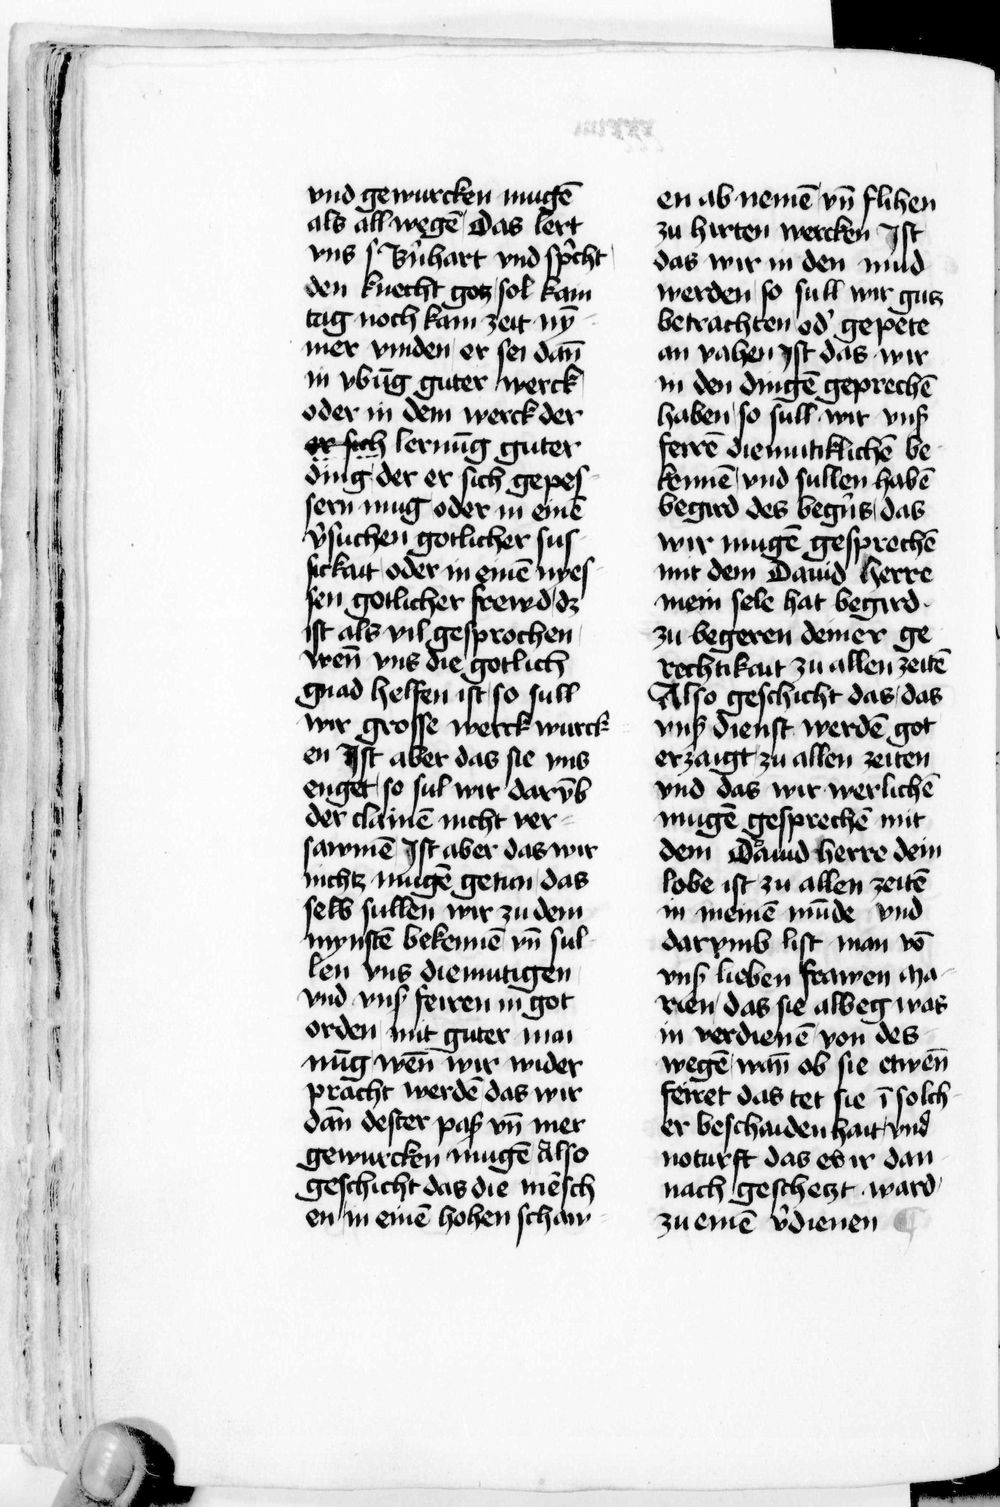 vnd gewurcken mugē
als all wegē Das lert
vns s Bn̉hart vnd sp̉cht
den knecht gotz sol kain
tag noch kain zeit ny̅
mer vinden er sei dan̄
in vbūg guter werck
oder in dem werck der
er sich lernūg guter
ding der er sich gepes
sern mug oder in einē
v̉suchen gotlicher sus
sickait oder in einē nyes
sen gotlicher frewd dz
ist als vil gesprochen
wen̄ vns die gotlich
gnad helfen ist so sull
wir grosse werck wurck
en Ist aber das sie vns
enget so sul wir darv̄b
der clainē nicht ver
sawmē Ist aber das wir
nichtz mugē getun das
selb sullen wir zu dem
mynstē bekennē vn̄ sul
len vns diemutigen
vnd vnß feiren in got
orden mit guter mai
nūg wen̄ wir wider
pracht werdē das wir
dan̄ dester paß vn̄ mer
gewurcken mugē Also
geschicht das die mēsch
en in einē hohen schaw
en ab nemē vn̄ flihen
zu hirten wercken Ist
das wir in den mud
werden so sull wir gutz
betrachten od̉ gepete
an vahen Ist das wir
in den dingē geprechē
haben so sull wir vnß
feirē diemutiklichē be
kennē vnd sullen habē
begird des begn̉s das
wir mugē gesprechē
mit dem Dauid herre
mein sele hat begird
zu begeren deiner ge
rechtikait zu allen zeitē
Also geschicht das das
vnß dienst werdē got
erzaigt zu allen zeiten
vnd das wir werlichē
mugē gesprechē mit
dem Dauid herre dein
lobe ist zu allen zeitē
in meinē mūde vnd
darvmb list man vō
vnß lieben frawen ma
rien das sie albeg was
in verdienē von des
wegē wan̄ ob sie etwen̄
feiret das tet sie ī solch
er beschaidenhait vnd
noturft das es ir dan
nach geschetzt ward
zu einē v̉dienen ¶